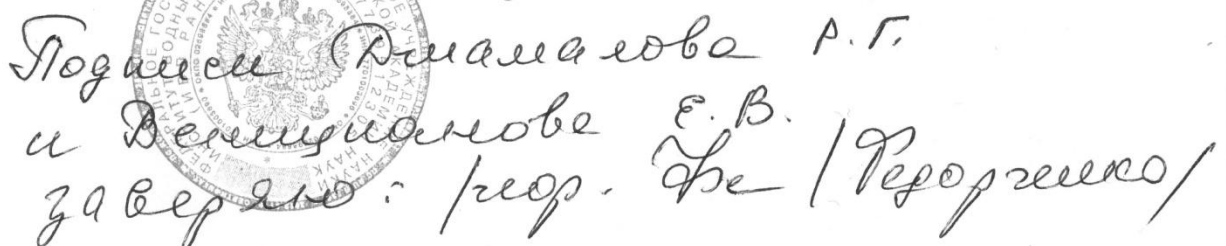 Подписи Джамалова Р.Г.
и Веницианова Е.В.
заверяю: /Федорченко/